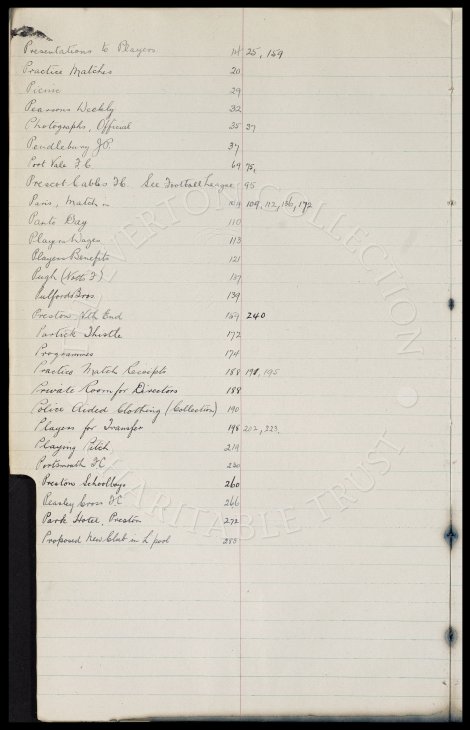 Presentations to Players 14 25, 159
Practice Matches 20
Picnic 29
Pearsons Weekly 32
Photographs, Official 35 37
Pendlebury J.P. 37
Port Vale F.C. 69 75,
Prescot Cables F.C. See Football League 95
Paris, Match in 104 109, 112, 136, 172
Panto Day 110
Players Wages 113
Players Benefits 121
Pugh (Notts F.) 137
Pulford Bros. 139
Preston Nth End 159 240
Partick Thistle 172
Programmes 174
Practice Match Receipts 188 191, 195
Private Room for Directors 188
Police Aided Clothing (Collection) 190
Players for Transfer 198 202, 223,
Playing Pitch 219
Portsmouth F.C. 230
Preston Schoolboys 260
Peasley Cross F.C. 266
Park Hotel, Preston 272
Proposed New Club in L'pool 285
EVERTON COLLECTION
CHARITABLE TRUST